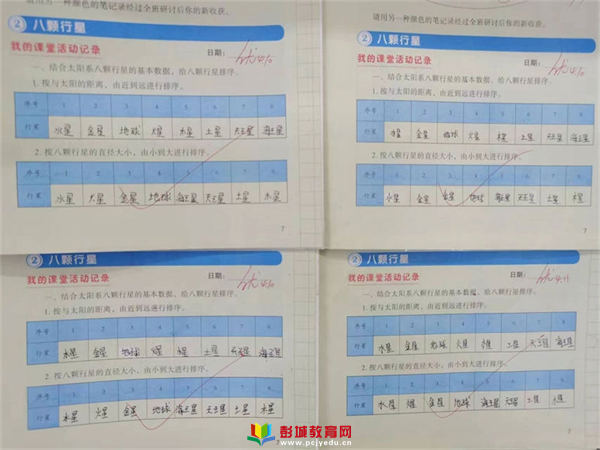 请用另一种颜色的笔记录经过全班研讨后你的新收获。
2 八颗行星
我的课堂活动记录
日期:
一、结合太阳系八颗行星的基本数据,给八颗行星排序。
1. 按与太阳的距离,由近到远进行排序。
序号 1 2 3 4 5 6 7 8
行星 水星 金星 地球 火星 木星 土星 天王星 海王星
2. 按八颗行星的直径大小,由小到大进行排序。
序号 1 2 3 4 5 6 7 8
行星 水星 火星 金星 地球 海王星 天王星 土星 木星
7
请用另一种颜色的笔记录经过全班研讨后你的新收获。
2 八颗行星
我的课堂活动记录
日期:
一、结合太阳系八颗行星的基本数据,给八颗行星排序。
1. 按与太阳的距离,由近到远进行排序。
序号 1 2 3 4 5 6 7 8
行星 金星 地球 火星 土星 天王星 海王星
2. 按八颗行星的直径大小,由小到大进行排序。
序号 1 2 3 4 5 6 7 8
行星 金星 地球 海王星 天王星 土星 木星
7
2 八颗行星
我的课堂活动记录
日期:
一、结合太阳系八颗行星的基本数据,给八颗行星排序。
1. 按与太阳的距离,由近到远进行排序。
序号 1 2 3 4 5 6 7 8
行星 水星 金星 地球 土星 天王星 海王星
2. 按八颗行星的直径大小,由小到大进行排序。
序号 1 2 3 4 5 6 7 8
行星 水星 火星 金星 地球 海王星 天王星 土星 木星
2 八颗行星
我的课堂活动记录
日期:
一、结合太阳系八颗行星的基本数据,给八颗行星排序。
1. 按与太阳的距离,由近到远进行排序。
序号 1 2 3 4 5 6 7 8
行星 水星 金星 地球 火星 土星 天王星 海王星
2. 按八颗行星的直径大小,由小到大进行排序。
序号 1 2 3 4 5 6 7 8
行星 水星 金星 地球 海王星 天王星 土星 木星
7
彭城教育网
www.pcjyedu.cn